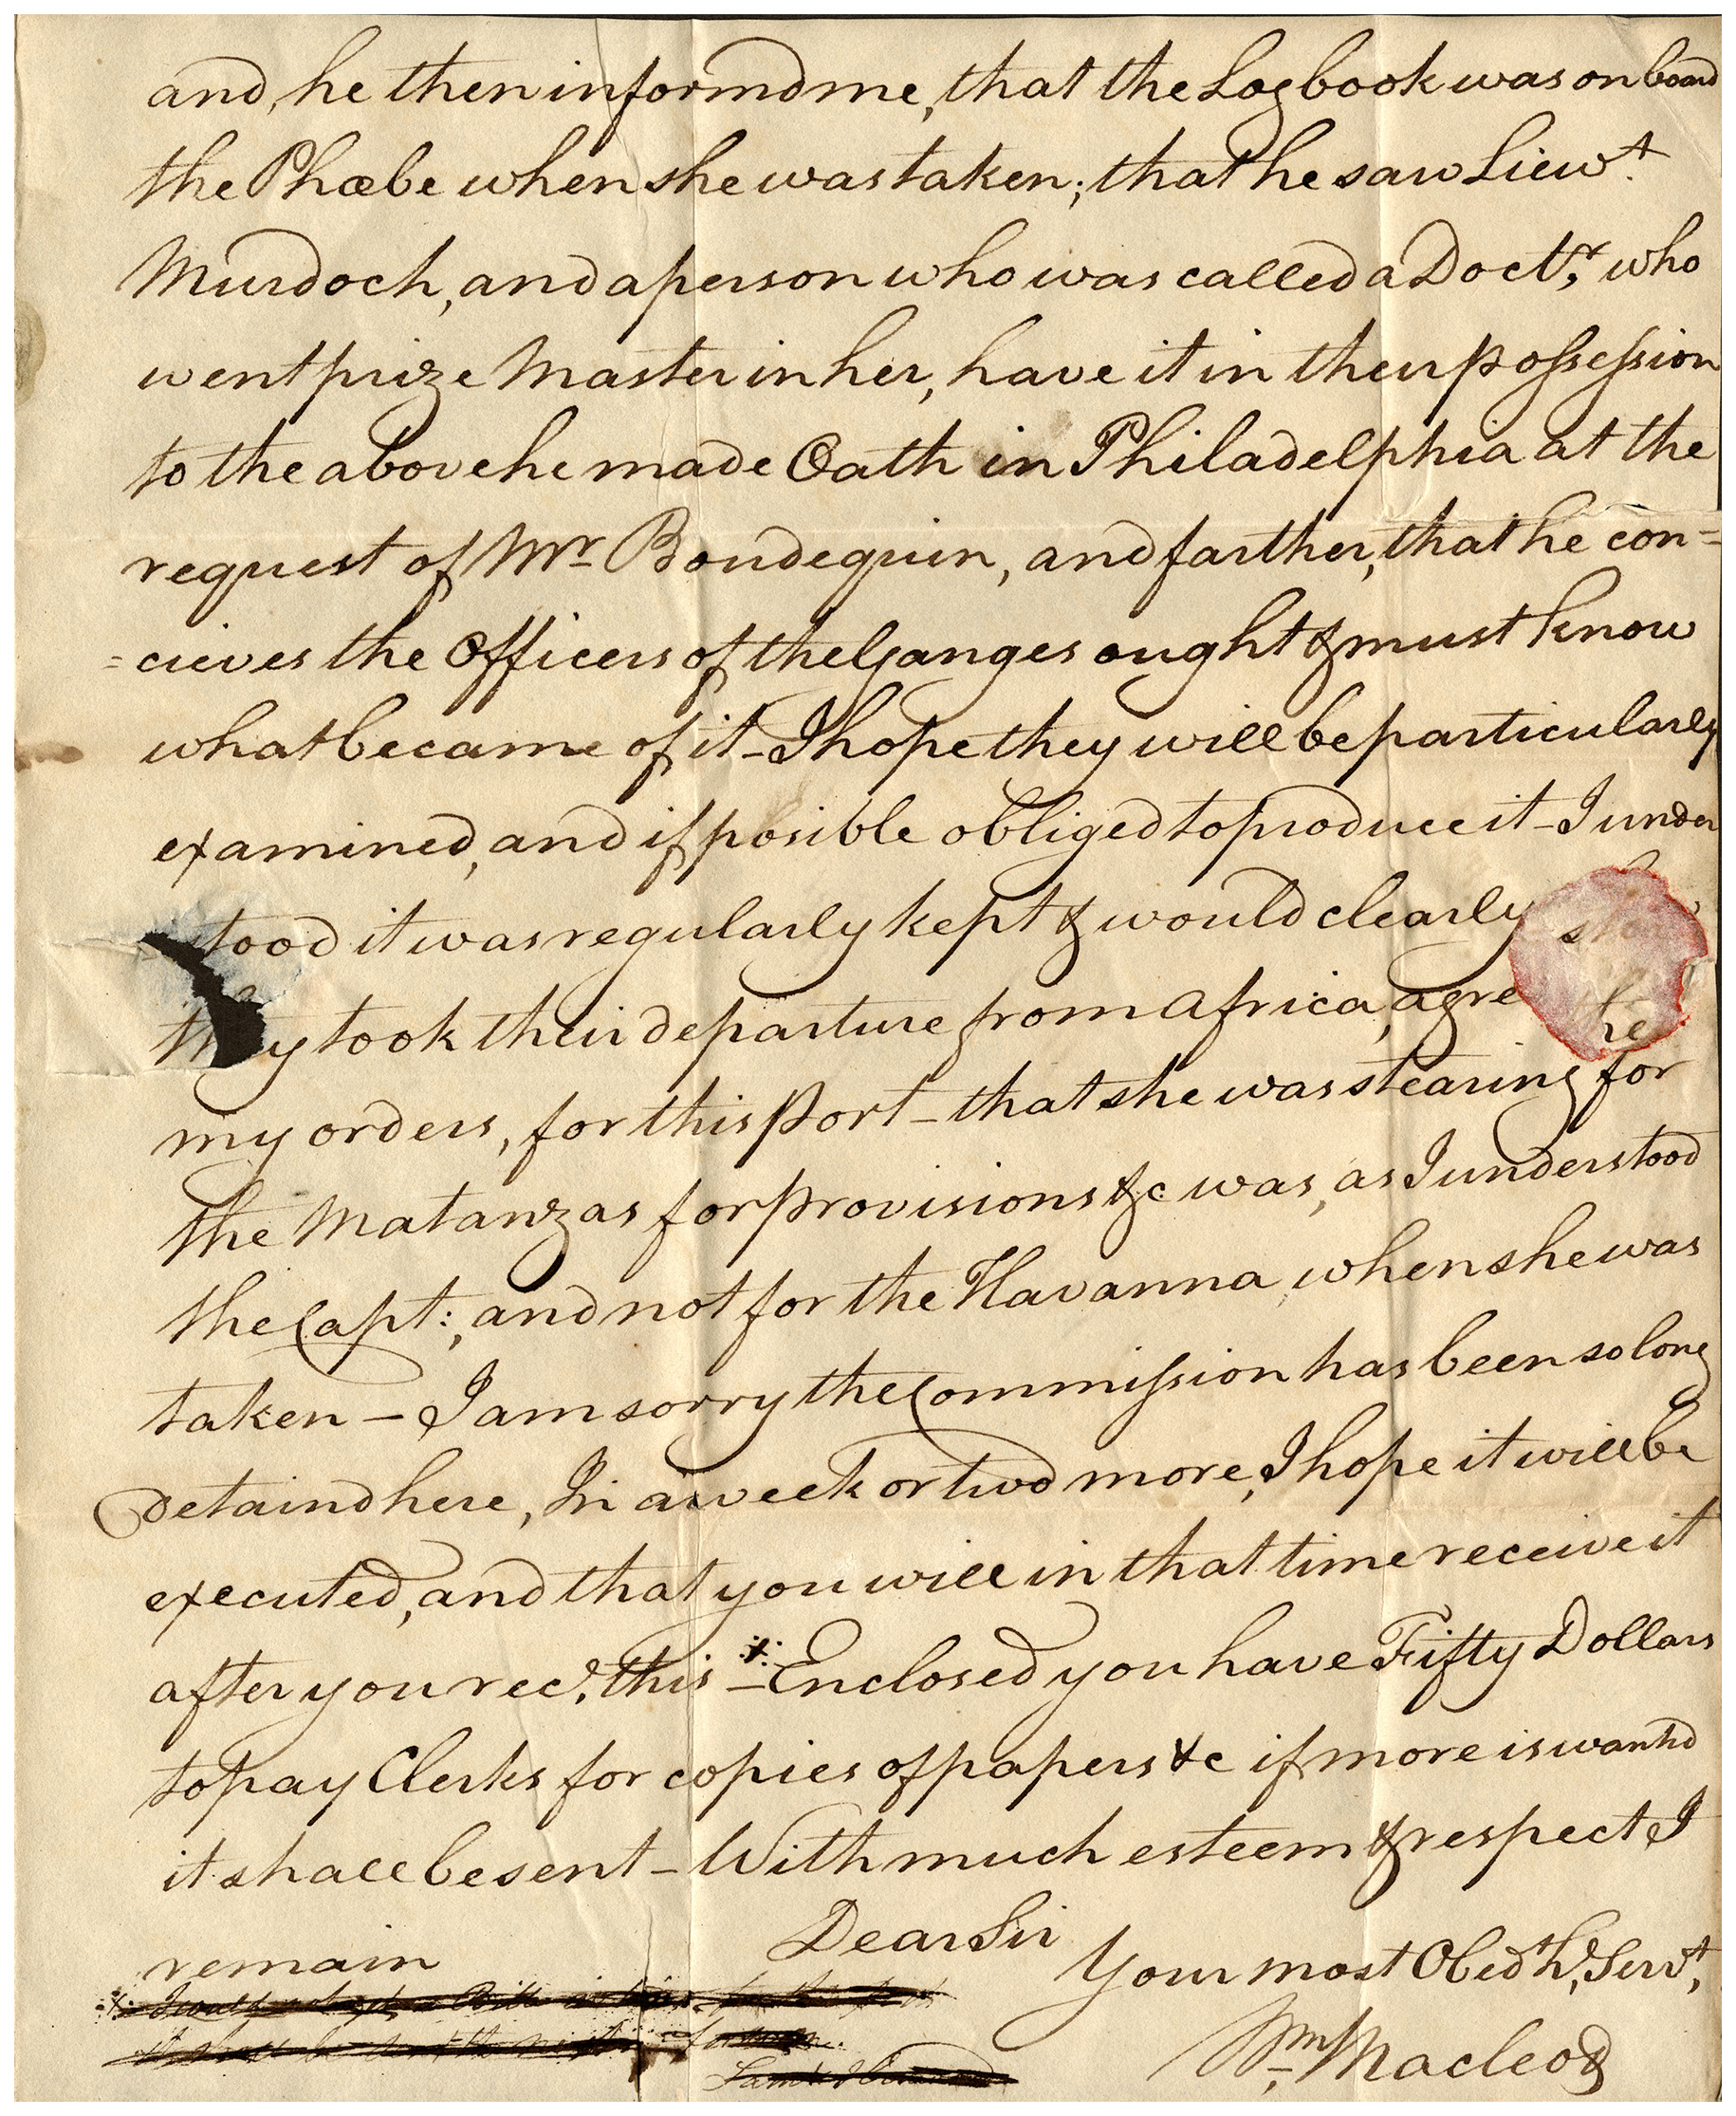 and, he then informd me, that the Logbook was on board
the Phæbe when she was taken; that he saw Liewt.
Murdoch, and a person who was called a Doctr, who
went prize Master in her, have it in their possession
to the above he made Oath in Philadelphia at the
request of Mr Boudequin, and farther, that he con=
=cieves the Officers of the Ganges ought & must know
what became of it - I hope they will be particularly
examined, and if posible obliged to produce it - I under
tood it was regularly kept & would clearly
they took their departure from Africa, agre he
my orders, for this Port - that she was stearing for
the Matanzas for provisions &c was, as I understood
the Capt:, and not for the Havanna when she was
taken - I am sorry the Commission has been so long
detaind here, In a week or two more, I hope it will be
executed, and that you will in that time receive it
after you recd. this - Enclosed you have Fifty Dollars
to pay Clerks for copies of papers &c if more is wantd
it shall be sent - With much esteem & respect I
remain Dear Sir
Your most Obedth, Servt,
Wm Macleod